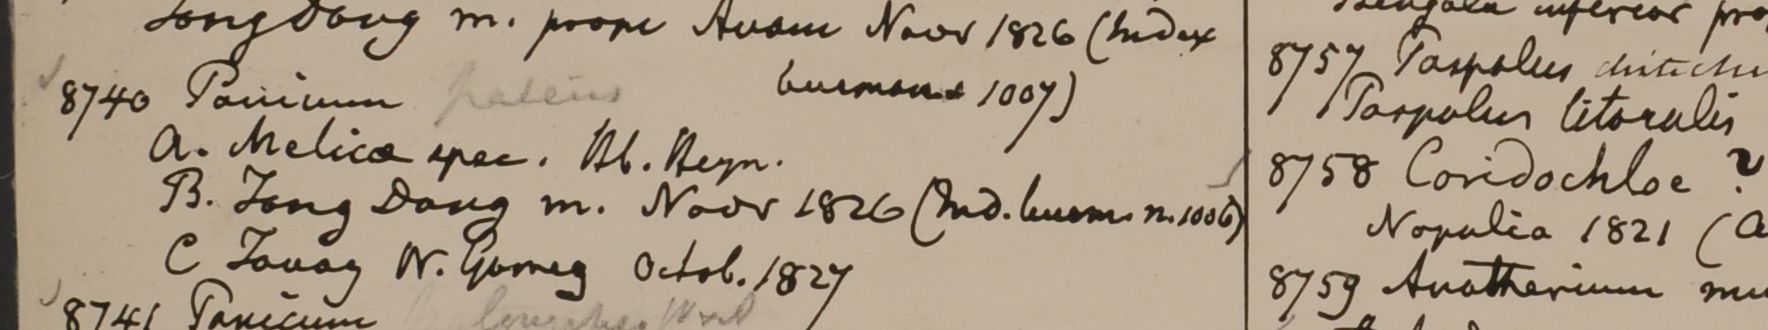 Tong Dong m. prope Avam Novr 1826 (Index
burmans 1007)
8740 Panicum patens
A. Melica spec. Hb. Heyn.
B. Tong Dong m. Novr 1826 (Ind. burm. n. 1006)
C Tavay W. Gomez Octob. 1827
8741 Panicum
Bengala inferior
8757 Paspalus
Paspalus litoralis
8758 Coridochloe ?
Nopalia 1821 (
8759 Anatherium mu